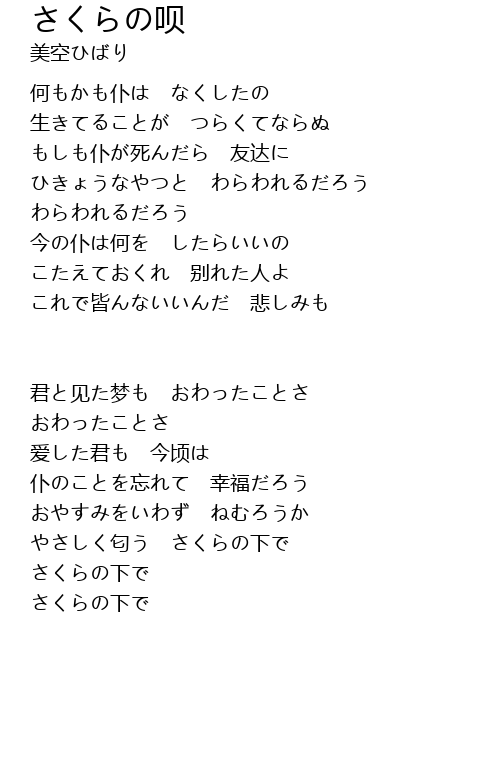 さくらの呗
美空ひばり
何もかも仆は　なくしたの
生きてることが　つらくてならぬ
もしも仆が死んだら　友达に
ひきょうなやつと　わらわれるだろう
わらわれるだろう
今の仆は何を　したらいいの
こたえておくれ　别れた人よ
これで皆んないいんだ　悲しみも
君と见た梦も　おわったことさ
おわったことさ
爱した君も　今顷は
仆のことを忘れて　幸福だろう
おやすみをいわず　ねむろうか
やさしく匂う　さくらの下で
さくらの下で
さくらの下で